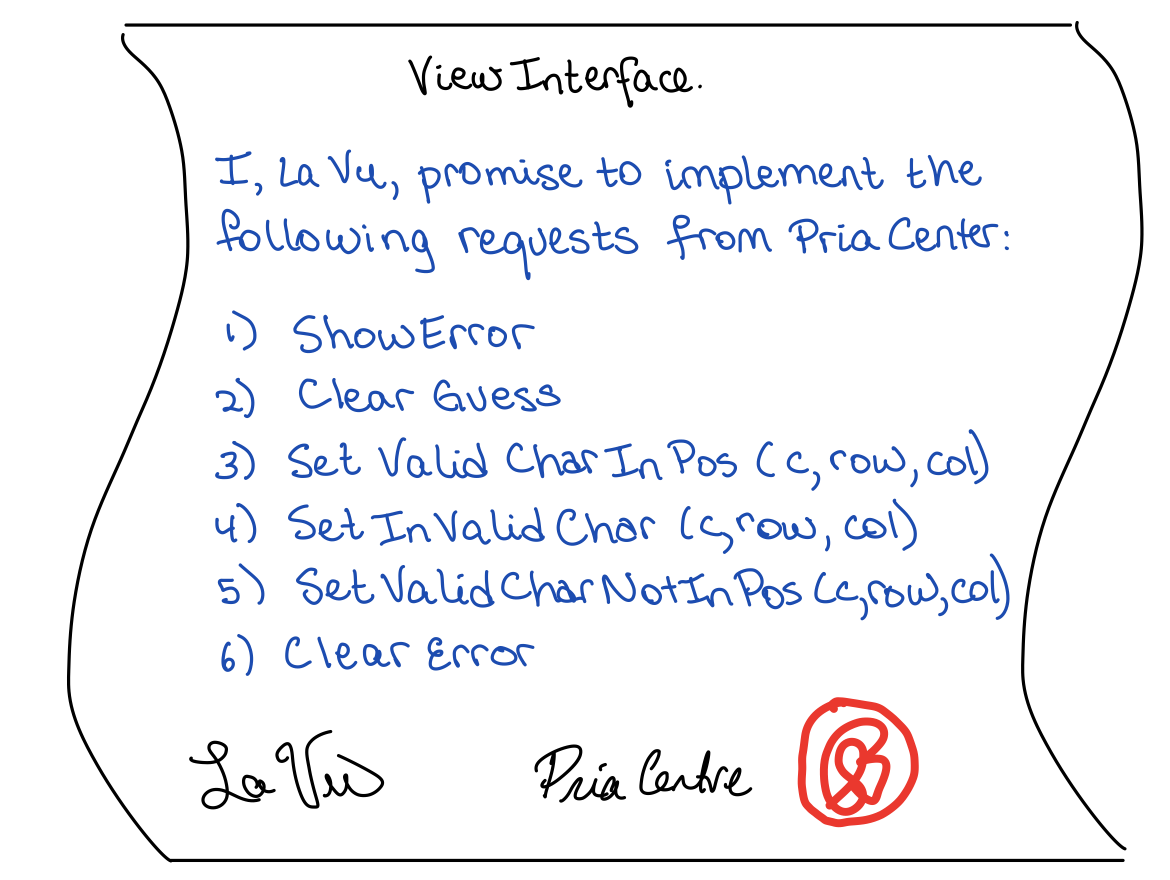 View Interface.
I, La Vu, promise to implement the
following requests from Pria Center:
1) Show Error
2) Clear Guess
3) Set Valid Char In Pos (c, row, col)
4) Set InValid Char (c, row, col)
5) Set Valid Char Not In Pos (c, row, col)
6) Clear Error
La Vu Pria Centre